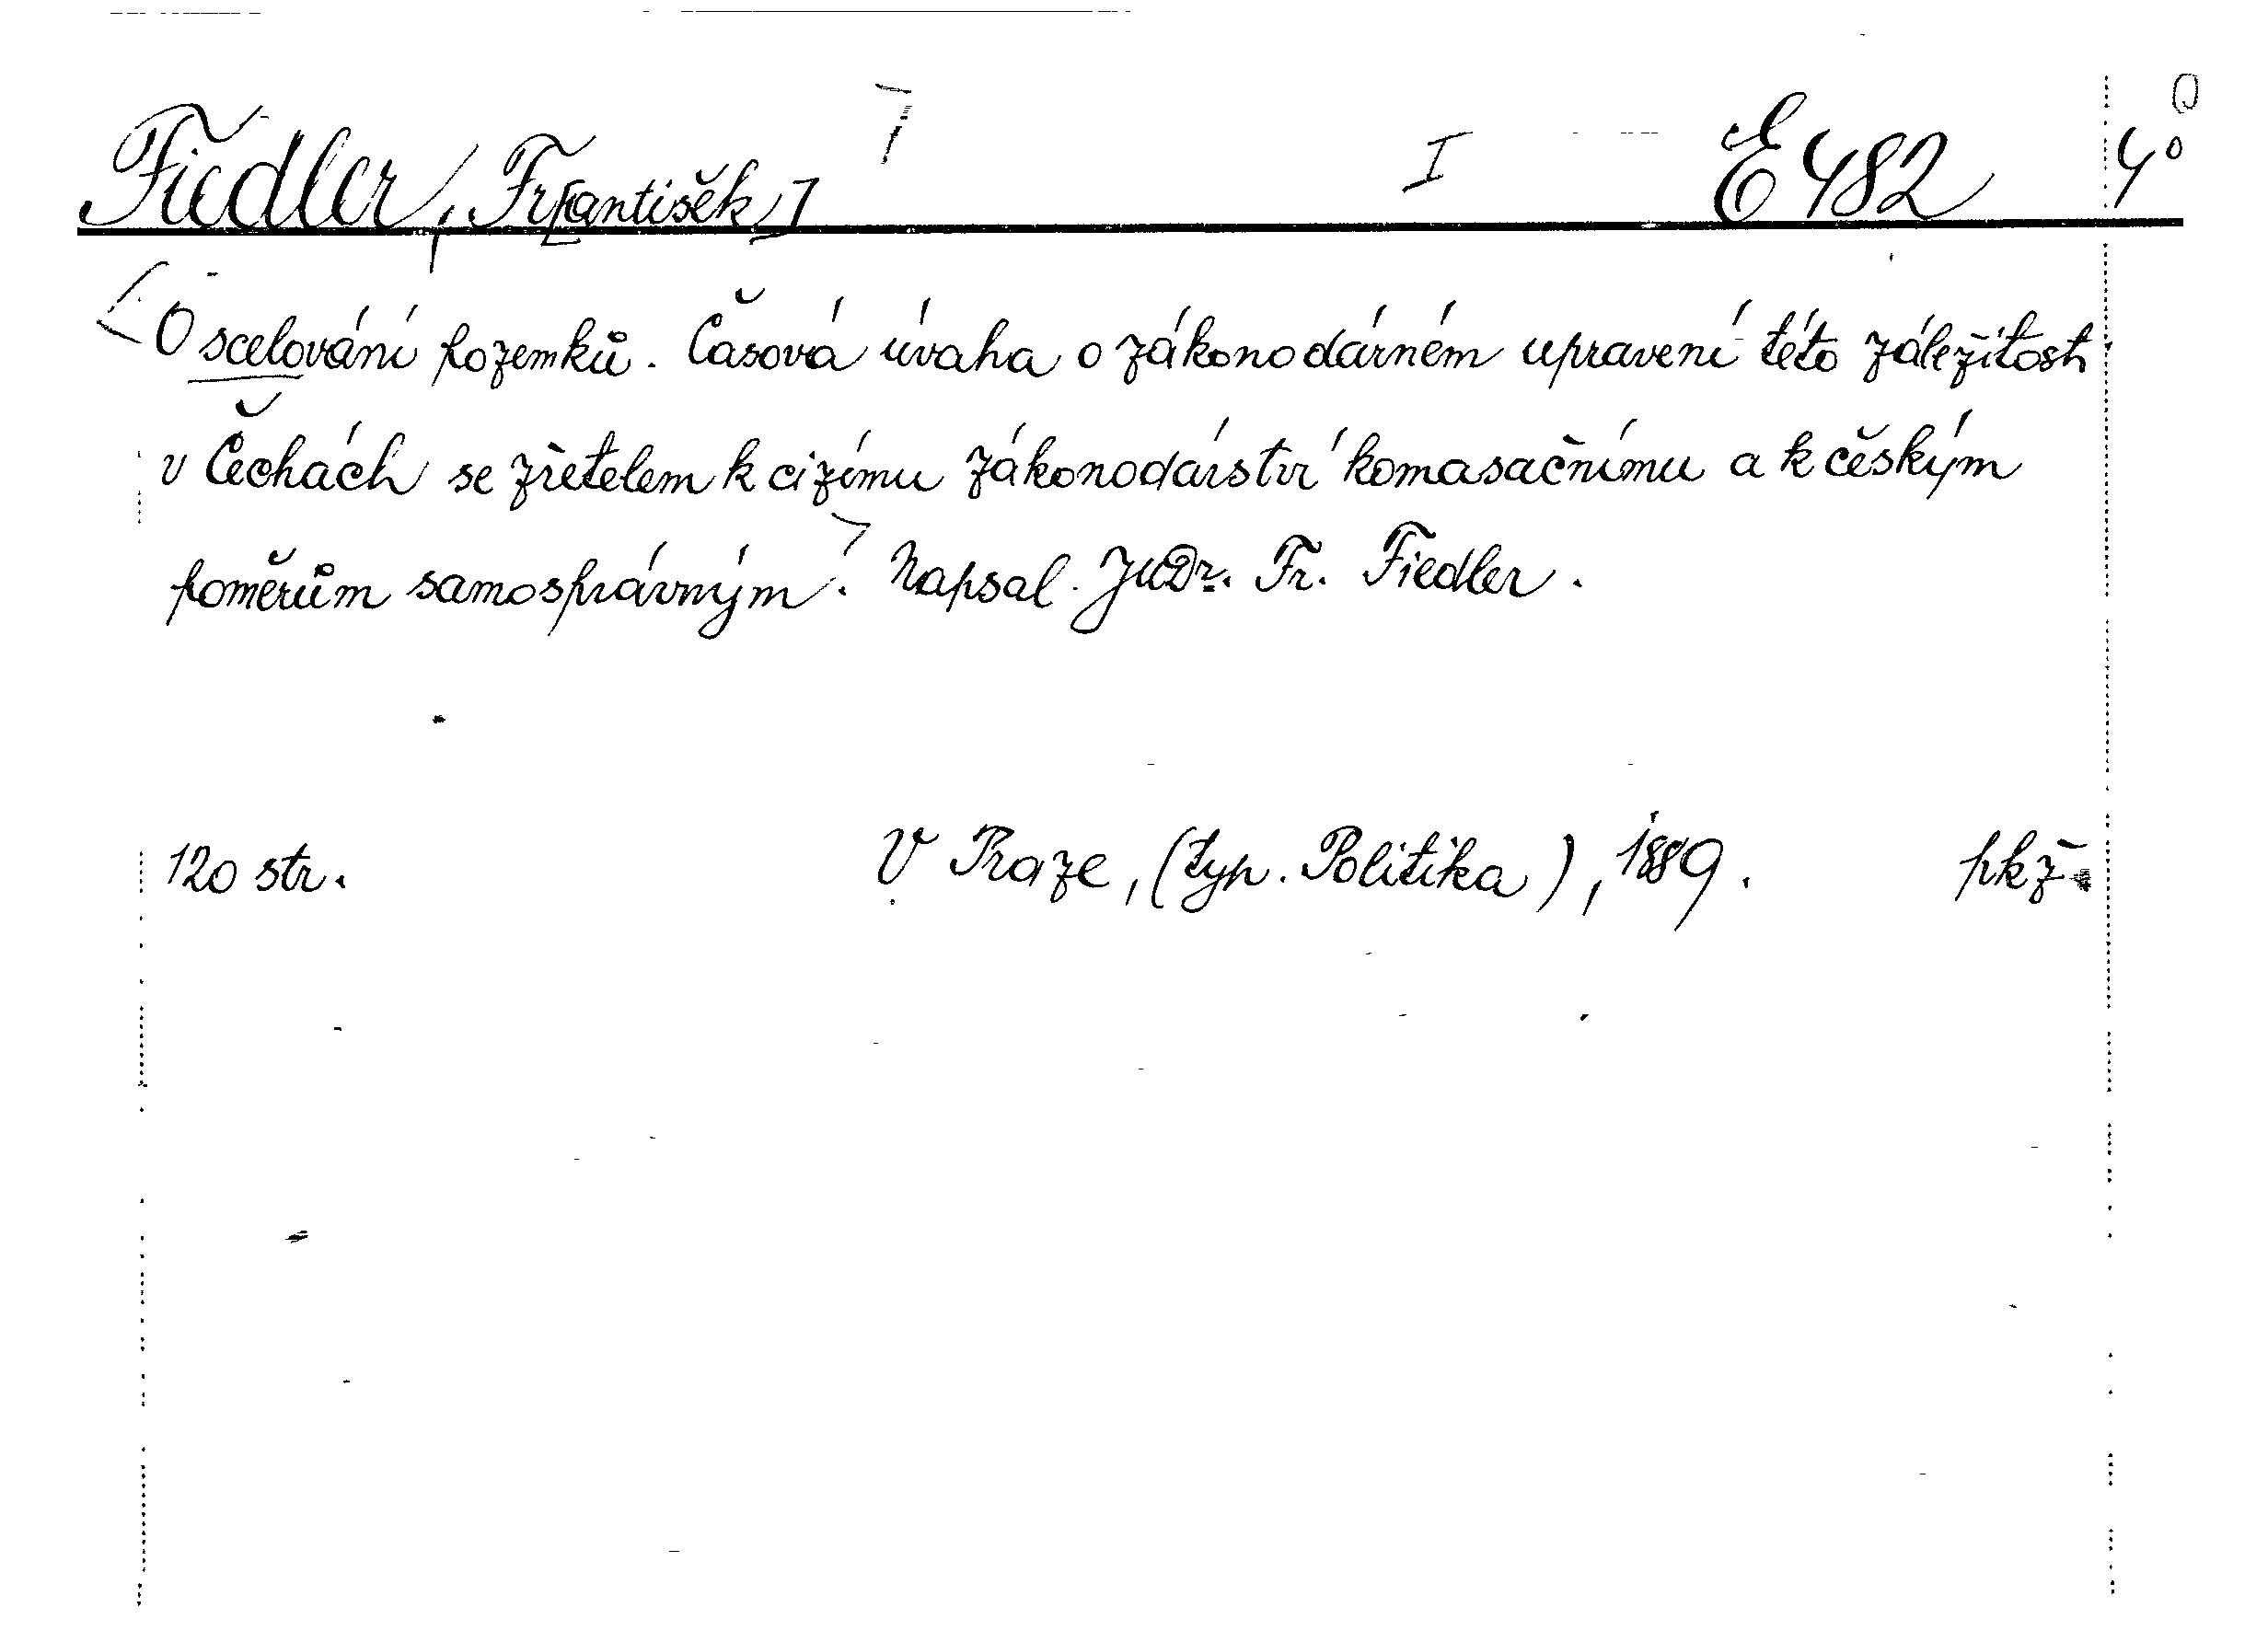 Fiedler, Fr[antišek] I E 482 4°
O scelování pozemků. Časová úvaha o zákonodárném upravení této záležitosti
v Čechách se zřetelem k cizímu zákonodárství komasačnímu a k českým
poměrům samosprávným. Napsal JUDr. Fr. Fiedler.
120 str. V Praze, (typ. Politika), 1889. pkž.